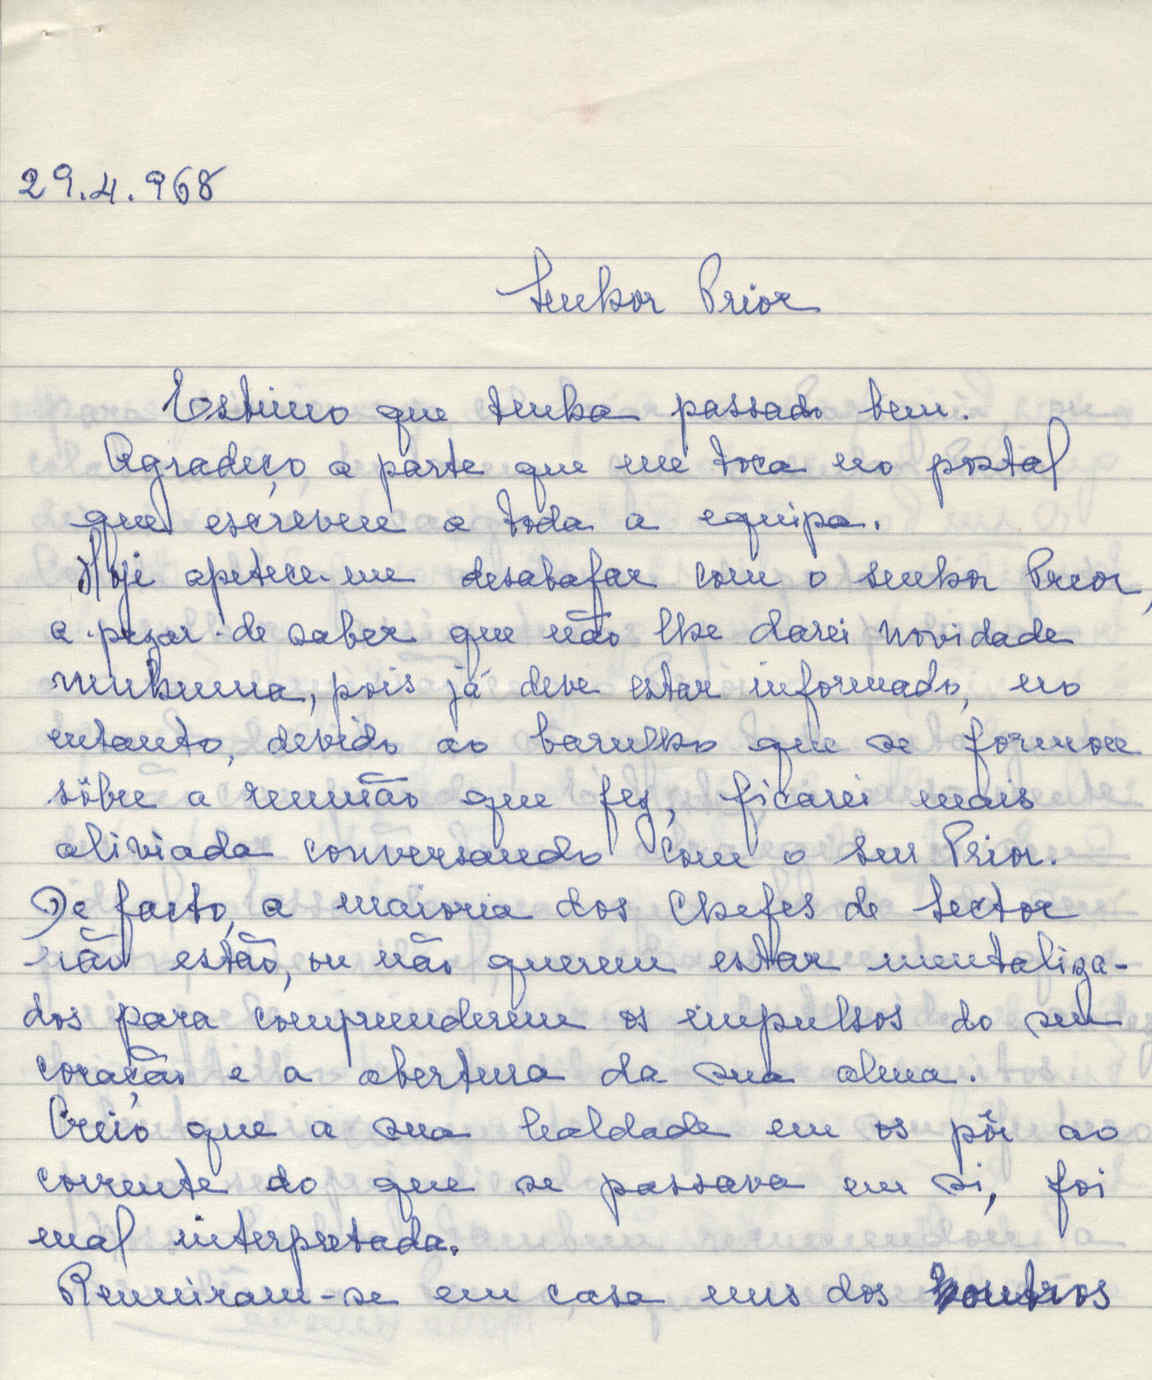 29.4.968
Senhor Prior
Estimo que tenha passado bem.
Agradeço a parte que me toca no postal
que escreveu a toda a equipa.
Hoje apetece-me desabafar com o senhor Prior,
a-pezar-de saber que não lhe darei novidade
nenhuma, pois já deve estar informado, no
entanto, devido ao barulho que se formou
sôbre a reunião que fez, ficarei mais
aliviada conversando com o sur Prior.
De facto, a maioria dos Chefes de Sector
não estão, ou não querem estar mentaliza-
dos para compreenderem os impulsos do seu
coração e a abertura da sua alma.
Creio que a sua lealdade em os pôr ao
corrente do que se passava em si, foi
mal interpretada.
Reuniram-se em casa uns dos outros